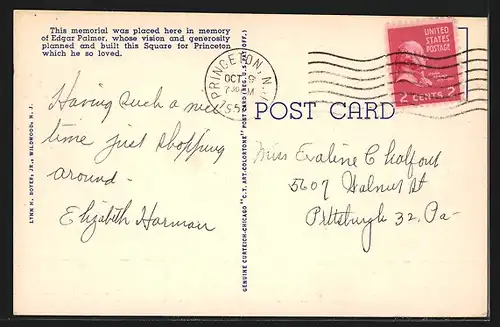 This memorial was placed here in memory
of Edgar Palmer, whose vision and generosity
planned and built this Square for Princeton
which he so loved.
PRINCETON, N.J.
OCT 9
7 30 PM
195
UNITED
STATES
POSTAGE
2 CENTS 2
POST CARD
Having such a nice
time just shopping
around -
Elizabeth Harman
Miss Evaline C Chalfant
5607 Walnut St
Pittsburgh 32, Pa-
LYNN H. BOYER, JR., WILDWOOD, N. J.
GENUINE CURTEICH-CHICAGO "C.T. ART-COLORTONE" POST CARD (REG. U.S. PAT. OFF.)